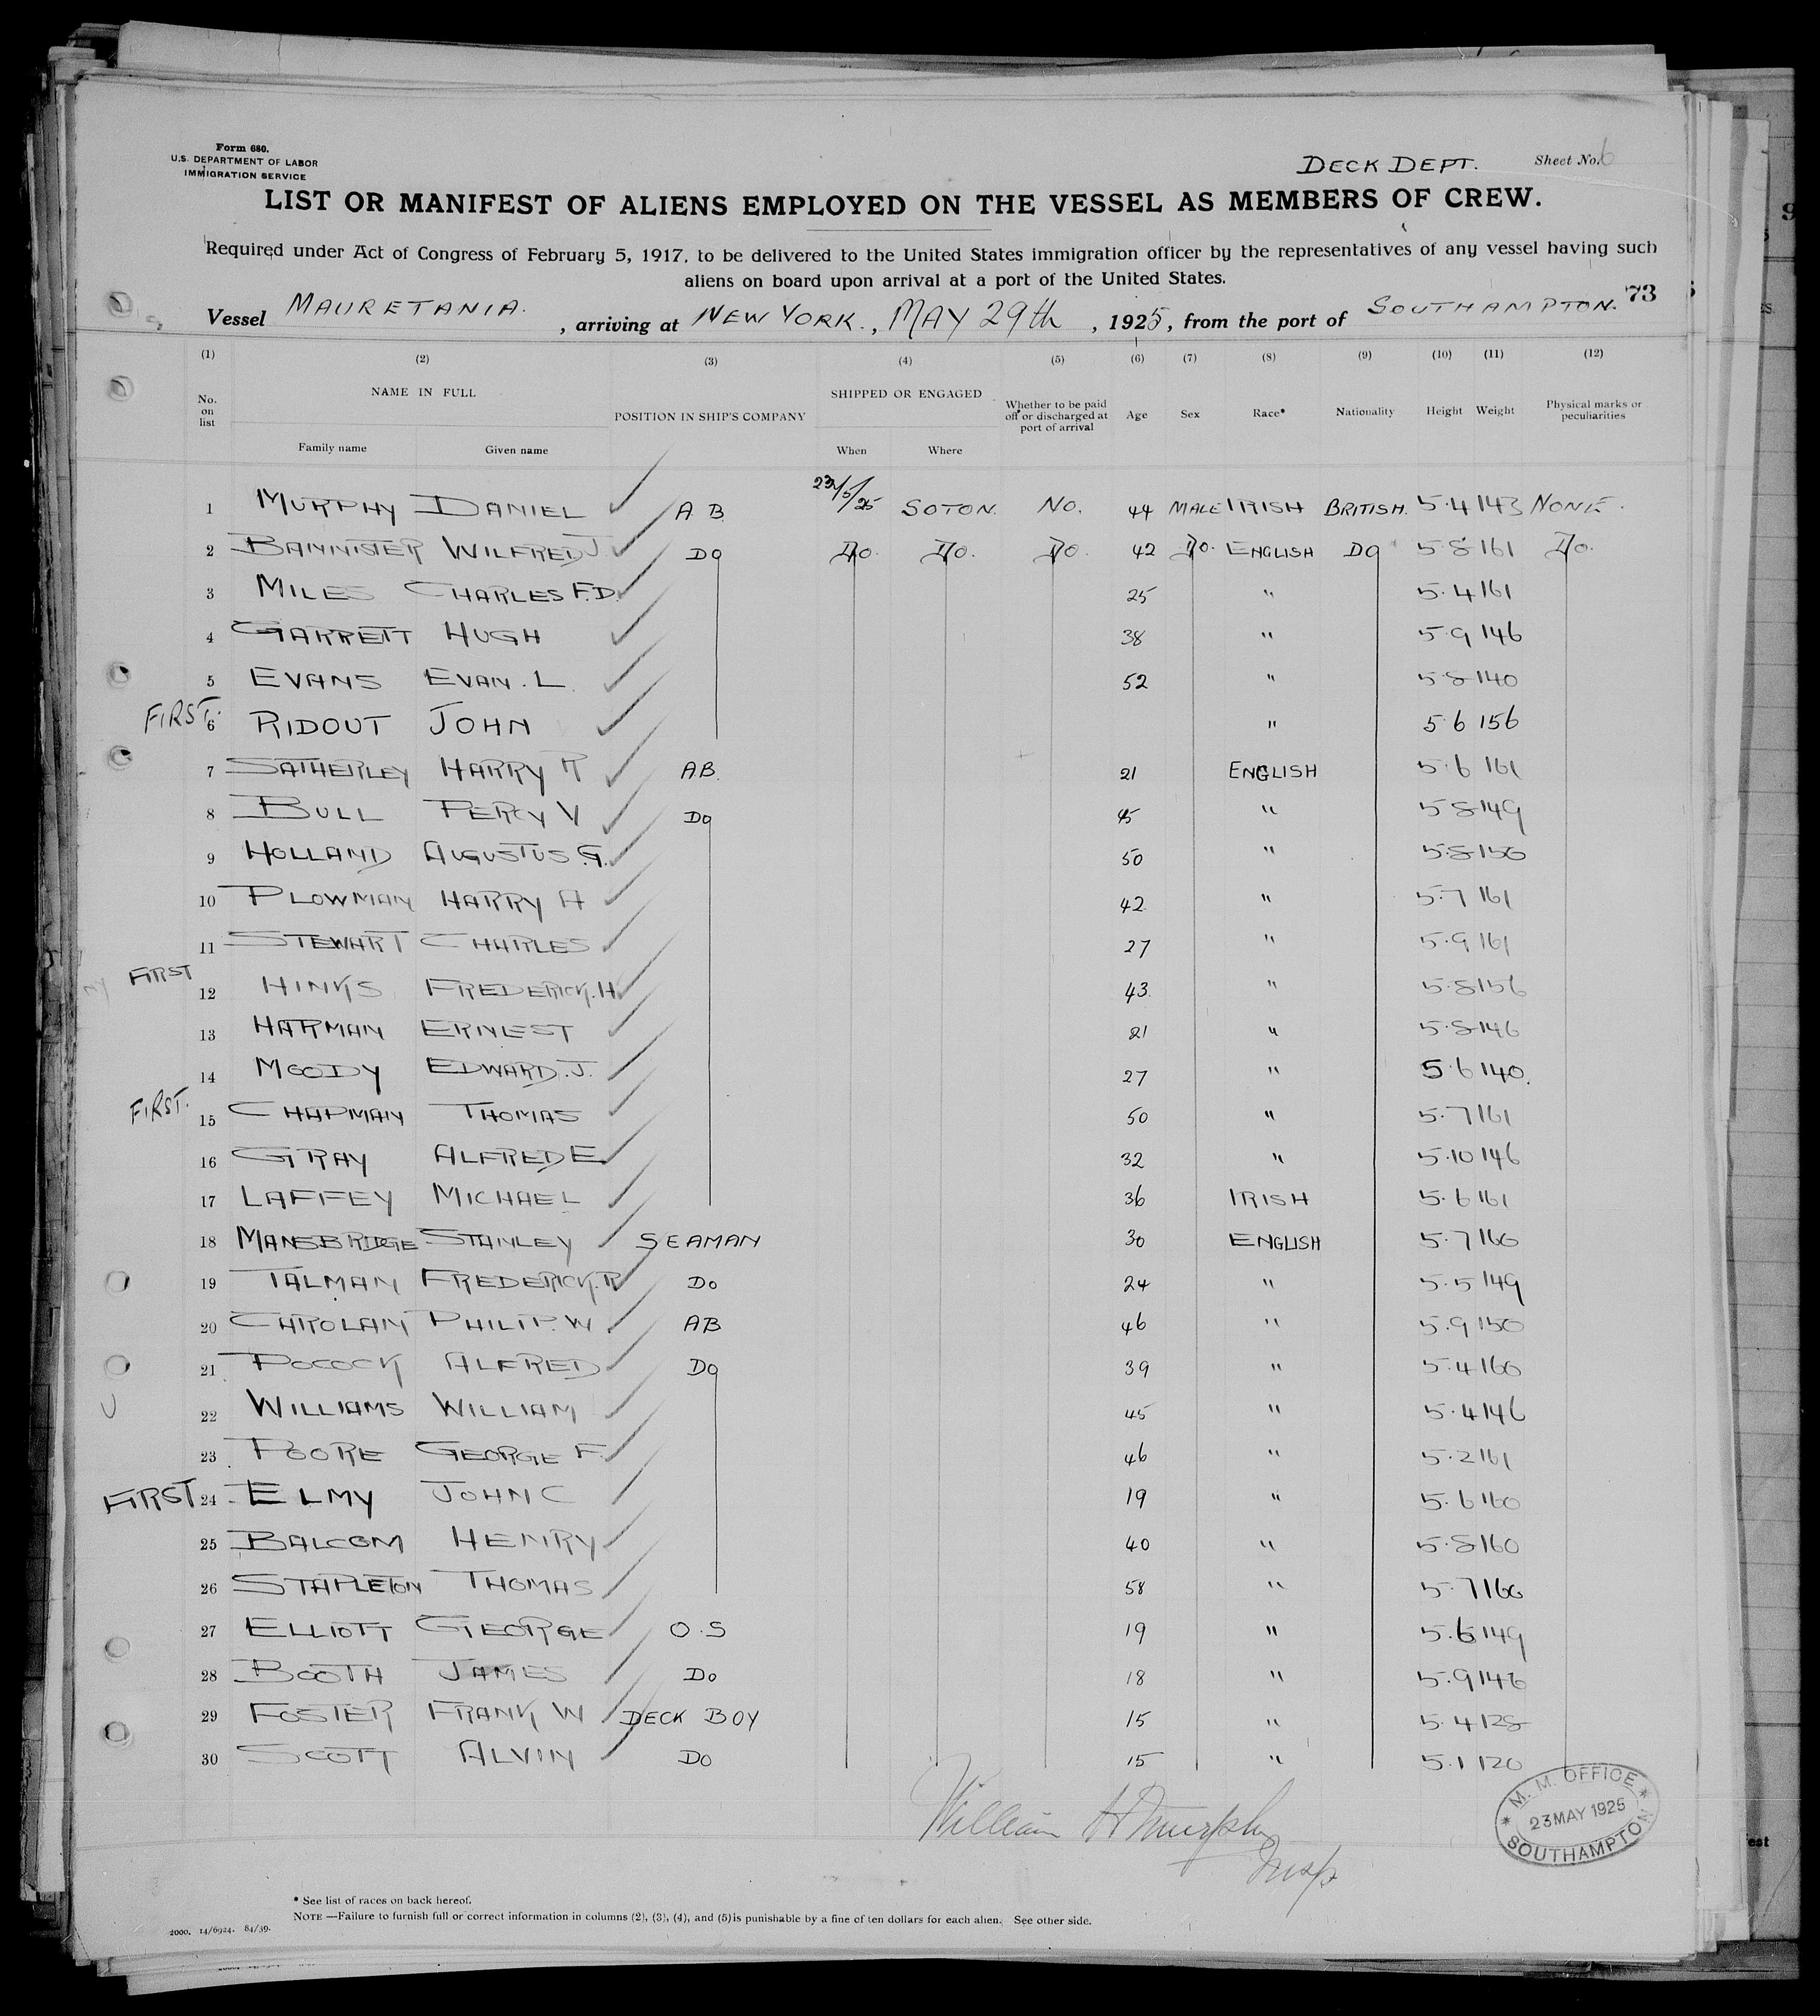 Form 680.
U.S. DEPARTMENT OF LABOR
IMMIGRATION SERVICE
DECK DEPT. Sheet No. 6
LIST OR MANIFEST OF ALIENS EMPLOYED ON THE VESSEL AS MEMBERS OF CREW.
Required under Act of Congress of February 5, 1917, to be delivered to the United States immigration officer by the representatives of any vessel having such
aliens on board upon arrival at a port of the United States.
73
Vessel MAURETANIA. , arriving at NEW YORK. , MAY 29th , 1925, from the port of SOUTHAMPTON.
(1) (2) (3) (4) (5) (6) (7) (8) (9) (10) (11) (12)
No. on list NAME IN FULL POSITION IN SHIP'S COMPANY SHIPPED OR ENGAGED Whether to be paid off or discharged at port of arrival Age Sex Race* Nationality Height Weight Physical marks or peculiarities
Family name Given name When Where
1 MURPHY DANIEL A B. 23/5/25 SOTON. NO. 44 MALE IRISH BRITISH. 5.4 143 NONE.
2 BANNISTER WILFRED J DO DO. DO. DO 42 DO. ENGLISH DO 5.8 161 DO.
3 MILES CHARLES F.D. 25 " 5.4 161
4 GARRETT HUGH 38 " 5.9 146
5 EVANS EVAN. L. 52 " 5.8 140
FIRST. 6 RIDOUT JOHN " 5 6 156
7 SATHERLEY HARRY R A.B. 21 ENGLISH 5.6 161
8 BULL PERCY V DO 45 " 5.8 149
9 HOLLAND AUGUSTUS.G. 50 " 5.8 150
10 PLOWMAN HARRY A 42. " 5.7 161
11 STEWART CHARLES 27 " 5.9 161
FIRST 12 HINKS FREDERICK.H. 43. " 5.8 156
13 HARMAN ERNEST 21 " 5.8 146
14 MOODY EDWARD.J. 27 " 5.6 140.
FIRST. 15 CHAPMAN THOMAS 50 " 5.7 161
16 GRAY ALFRED E. 32 " 5.10 146
17 LAFFEY MICHAEL 36 IRISH 5.6 161
18 MANSBRIDGE STANLEY SEAMAN 30 ENGLISH 5.7 160
19 TALMAN FREDERICK.R DO 24 " 5.5 149
20 PHILIP.W. AB 46 " 5.9 150
21 POCOCK ALFRED DO 39 " 5.4 160
22 WILLIAMS WILLIAM 45 " 5.4 146
23 POORE GEORGE F. 46 " 5.2 161
FIRST 24 ELMY JOHN C 19 " 5.6 160
25 BALCOM HENRY 40 " 5.8 160
26 STAPLETON THOMAS 58 " 5.7 160
27 ELLIOTT GEORGE O.S 19 " 5.6 149
28 BOOTH JAMES DO 18 " 5.9 146
29 FOSTER FRANK W DECK BOY 15 " 5.4 128
30 SCOTT ALVIN DO 15 " 5.1 120
William H Murphy
Insp
M. M. OFFICE
23 MAY 1925
SOUTHAMPTON
* See list of races on back hereof.
NOTE —Failure to furnish full or correct information in columns (2), (3), (4), and (5) is punishable by a fine of ten dollars for each alien. See other side.
2000. 14/6924. 84/39.